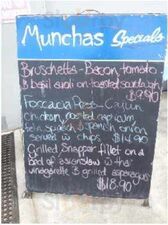 Munchas Specials
Bruschetta - Bacon, tomato
& basil on toasted sourdough
Foccacia Pesto - Cajun
chicken, roasted capsicum
feta, spinach & Spanish onion
served w chips $14.90
Grilled Snapper fillet on a
bed of asian slaw w thai
vinegarette & grilled asparagus
$18.90